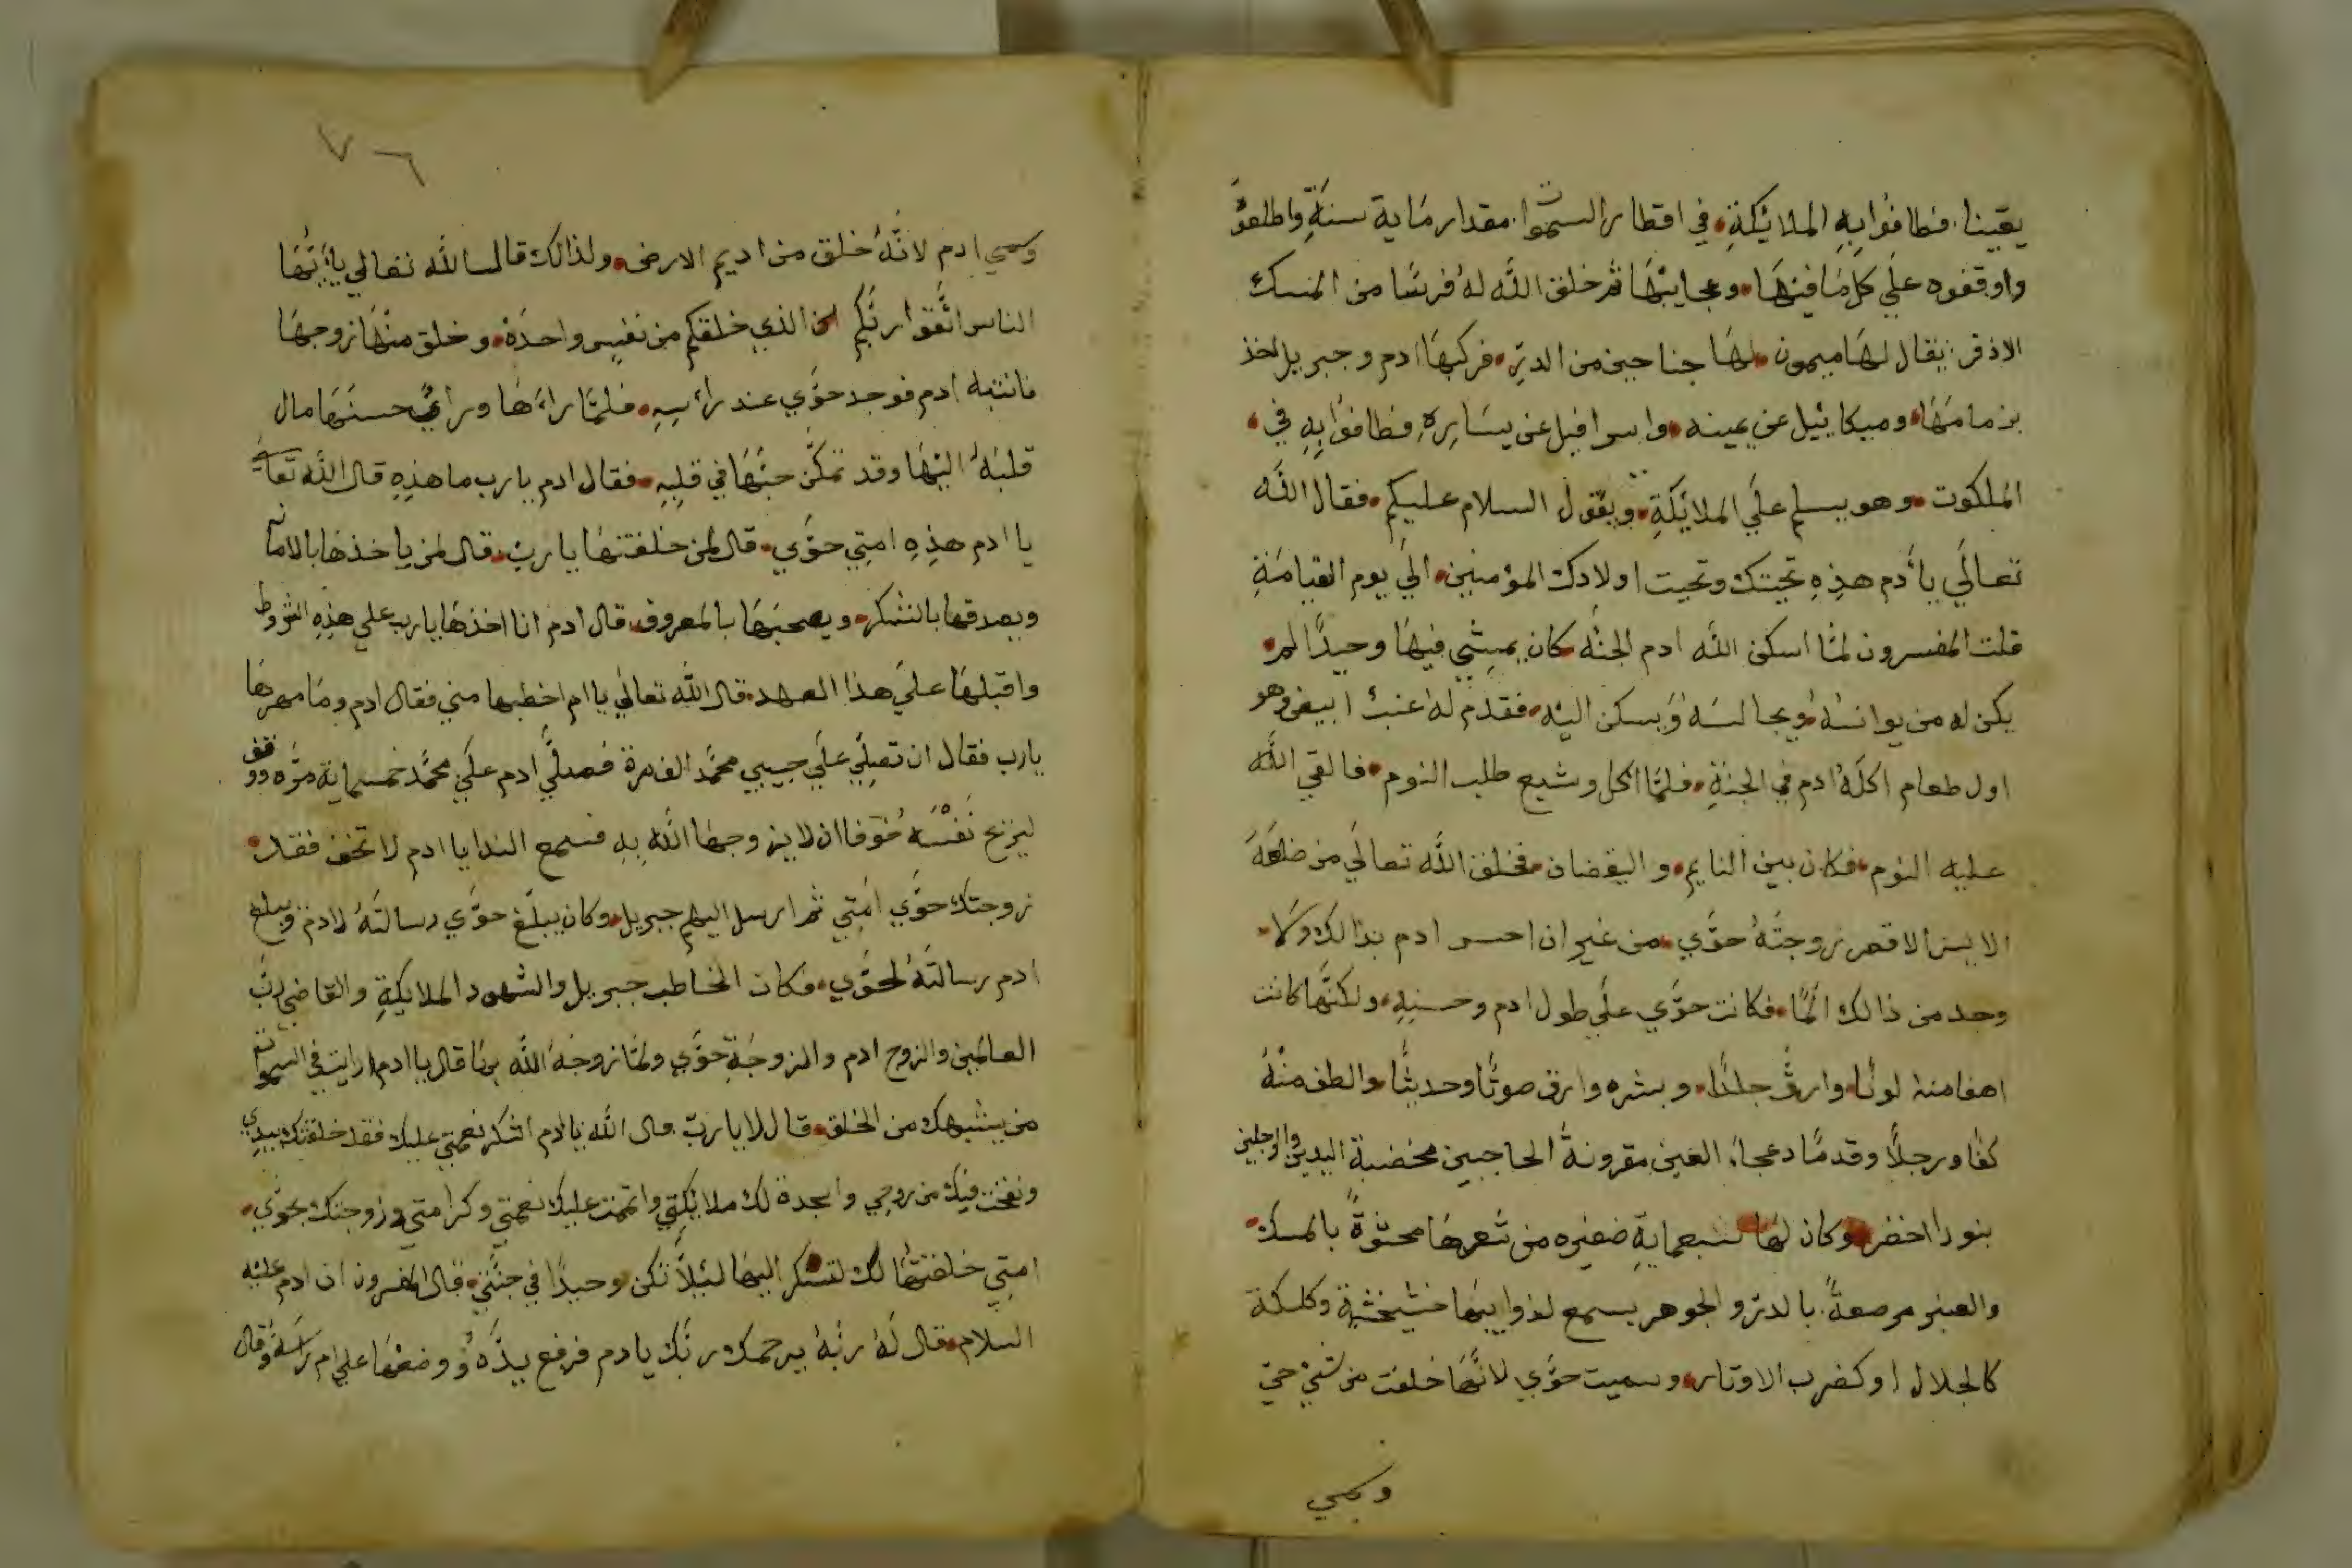 يقينا. فطافوا به الملايكة. في اقطار السموات مقدار ماية سنة واطلعوا
واوقفوه علي كل ما فيها. وعجايبها ثم خلق الله له فرسا من المسك
الاذفر: يقال لها ميمون. لها جناحين من الدر. فركبها ادم وجبريل اخذ
بزمامها. وميكاييل عن يمينه. واسرافيل عن يساره. فطافوا به في.
الملكوت. وهو يسلم علي الملايكة. ويقول السلام عليكم. فقال الله
تعالي يا أدم هذه تحيتك وتحيت اولادك المؤمنين. الي يوم القيامة
قلت المفسرون لما اسكن الله ادم الجنه كان يمشي فيها وحيدا لم.
يكن له من يوانسه ويجالسه ويسكن اليه. فقدم له عنب ابيض وهو
اول طعام اكله ادم في الجنة. فلما اكل وشبع طلب النوم. فالقي الله
عليه النوم. فكان بين النايم. واليقضان. فخلق الله تعالي من ضلعه
الايسر الاقصر زوجته حوي. من غير ان احس ادم بذالك ولا.
وجد من ذالك الما. فكانت حوي علي طول ادم وحسنه. ولكنها كانت
اصفا منه لونا. وارق جلدا. وبشره وارق صوتا وحديثا. والطف منه
كفا ورجلا وقدما دعجاء العين مقرونة الحاجبين مخضبة اليدين والرجلين
بنور اخضر وكان لها سبعماية ضفيره من شعرها محشوة بالمسك.
والعنبر مرصعة. بالدر والجوهر يسمع لذوايبها خشخشة وكلكة
كالجلال او كضرب الاوتار. وسميت حوي لانها خلقت من شي حي
وسمي
٧٦
وسمي ادم لانه خلق من اديم الارض. ولذالك قال الله تعالي يا أيها
الناس اتقوا ربكم الذي خلقكم من نفس واحدة. وخلق منها زوجها
فانتبه ادم فوجد حوي عند رأسه. فلما راها وراي حسنها مال
قلبه اليها وقد تمكن حبها في قلبه. فقال ادم يا رب ما هذه قال الله تعالي
يا ادم هذه امتي حوي. قال لمن خلقتها يا رب. قال لمن ياخذها بالامانه
ويصدقها بالشكر. ويصحبها بالمعروف. قال ادم انا اخذها يا رب علي هذه الشروط
واقبلها علي هذا العهد. قال الله تعالي يا ام اخطبها مني فقال ادم وما مهرها
يا رب فقال ان تصلي علي حبيبي محمد الف مرة فصلي ادم علي محمد خمسماية مره ووقف
ليريح نفسه خوفا ان لا يزوجها الله به فسمع الندا يا ادم لا تخف فقد.
زوجتك حوي امتي ثم ارسل اليهم جبريل. وكان يبلغ حوي رسالته لادم ويبلغ
ادم رسالته لحوي. فكان الخاطب جبريل والشهود الملايكة والقاضي رب
العالمين والزوج ادم والزوجة حوي ولما زوجه الله بها قال يا ادم ارايت في السموات
من يشبهك من الخلق. قال لا يا رب قال الله يا ادم اشكر نعمتي عليك فقد خلقتك بيدي
ونفخت فيك من روحي واسجدة لك ملائكتي واتممت عليك نعمتي وكرامتي وزوجتك بحوي.
امتي خلقتها لك لتسكن اليها لئلا تكن وحيدا في جنتي. قال المفسرون ان ادم عليه
السلام. قال له ربه يرحمك ربك يا دم فرفع يده ووضعها علي ام راسه وقال